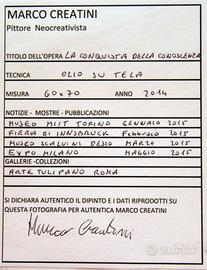 MARCO CREATINI
Pittore Neocreativista
TITOLO DELL'OPERA LA CONQUISTA DELLA CONOSCENZA
TECNICA OLIO SU TELA
MISURA 60x70 ANNO 2014
NOTIZIE - MOSTRE - PUBBLICAZIONI
MUSEO MIIT TORINO GENNAIO 2015
FIERA DI INNSBRUCK Febbraio 2015
MUSEO SCALVINI DESIO MARZO 2015
EXPO MILANO MAGGIO 2015
GALLERIE -COLLEZIONI
ARTE TULIPANO ROMA
SI DICHIARA AUTENTICO IL DIPINTO E I DATI RIPRODOTTI SU
QUESTA FOTOGRAFIA PER AUTENTICA MARCO CREATINI
Marco Creatini
subito